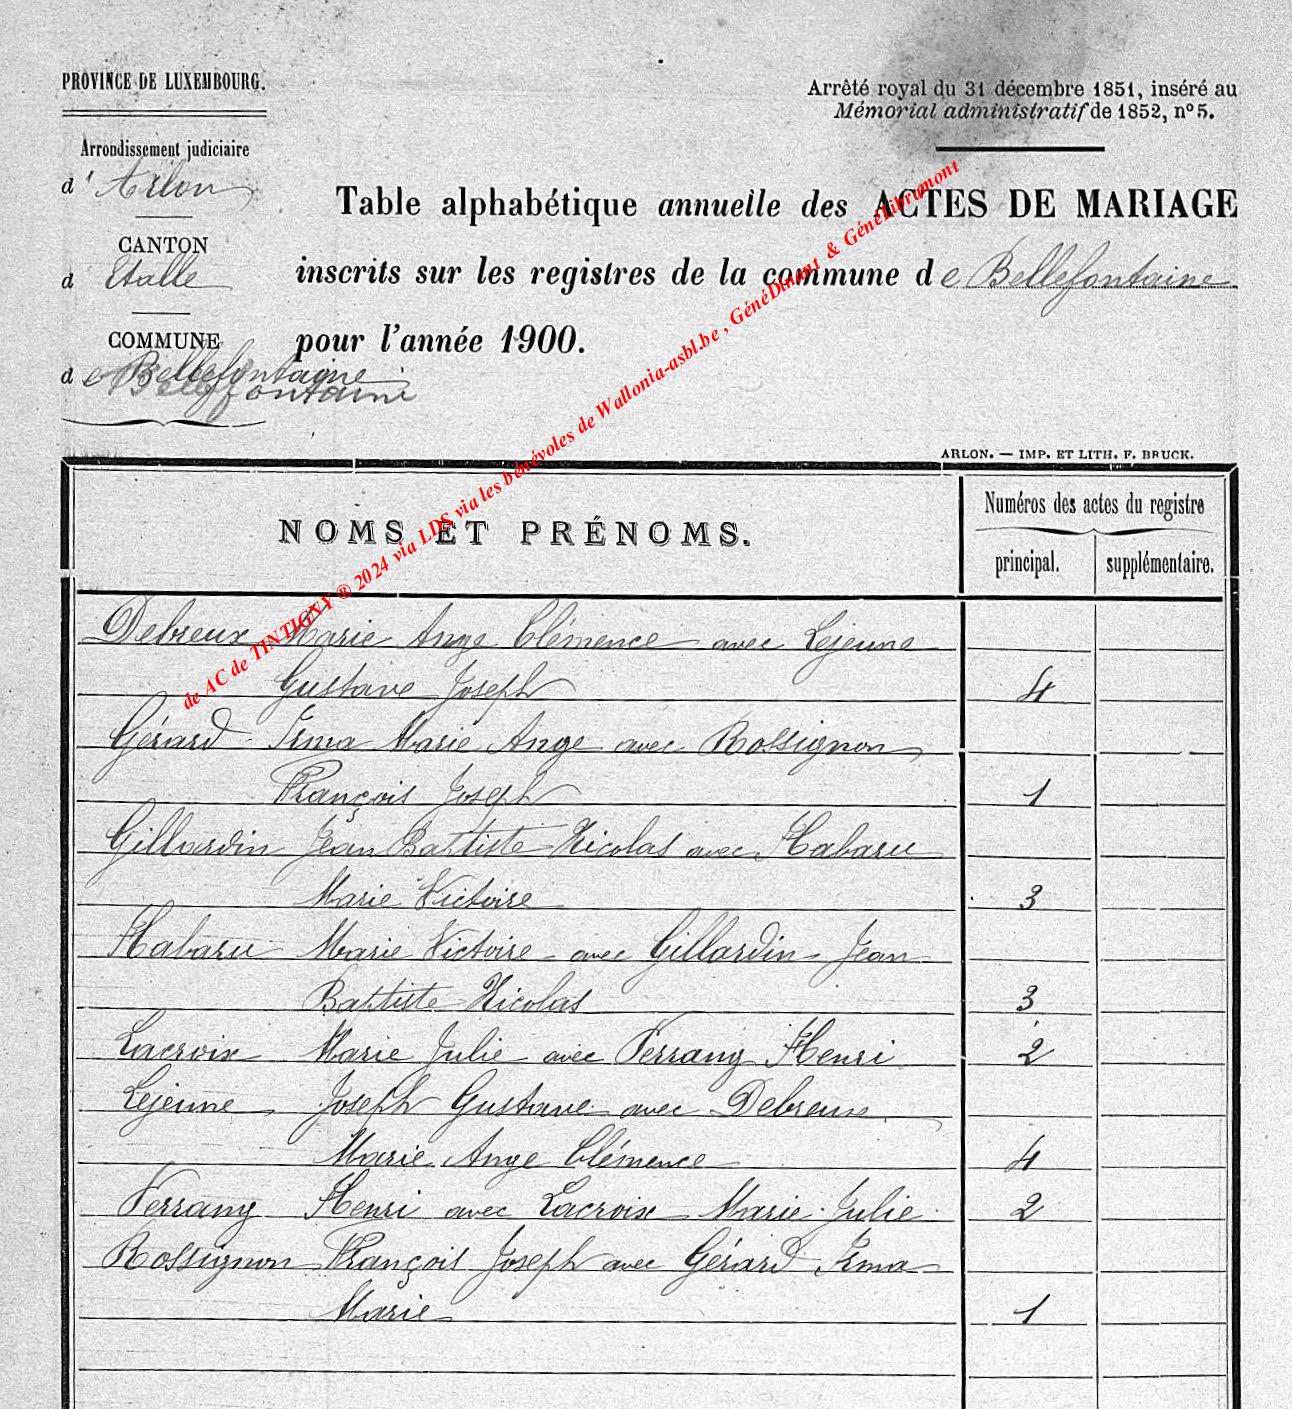 PROVINCE DE LUXEMBOURG.
Arrêté royal du 31 décembre 1851, inséré au
Mémorial administratif de 1852, n° 5.
Arrondissement judiciaire
d' Arlon
CANTON
d Etalle
COMMUNE
de Bellefontaine
Bellefontaine
Table alphabétique annuelle des ACTES DE MARIAGE
inscrits sur les registres de la commune de Bellefontaine
pour l'année 1900.
de AC de TINTIGNY ® 2024 via LDS via les bénévoles de Wallonia-asbl.be , GénéDinant & GénéLibramont
ARLON. — IMP. ET LITH. F. BRUCK.
NOMS ET PRÉNOMS.
Numéros des actes du registre
principal.
supplémentaire.
Debreux Marie Ange Clémence avec Lejeune
Gustave Joseph 4
Gérard Irma Marie Ange avec Rossignon
François Joseph 1
Gillardin Jean Baptiste Nicolas avec Habaru
Marie Victoire 3
Habaru Marie Victoire avec Gillardin Jean
Baptiste Nicolas 3
Lacroix Marie Julie avec Perrang Henri 2
Lejeune Joseph Gustave avec Debreux
Marie Ange Clémence 4
Perrang Henri avec Lacroix Marie Julie 2
Rossignon François Joseph avec Gérard Irma
Marie 1